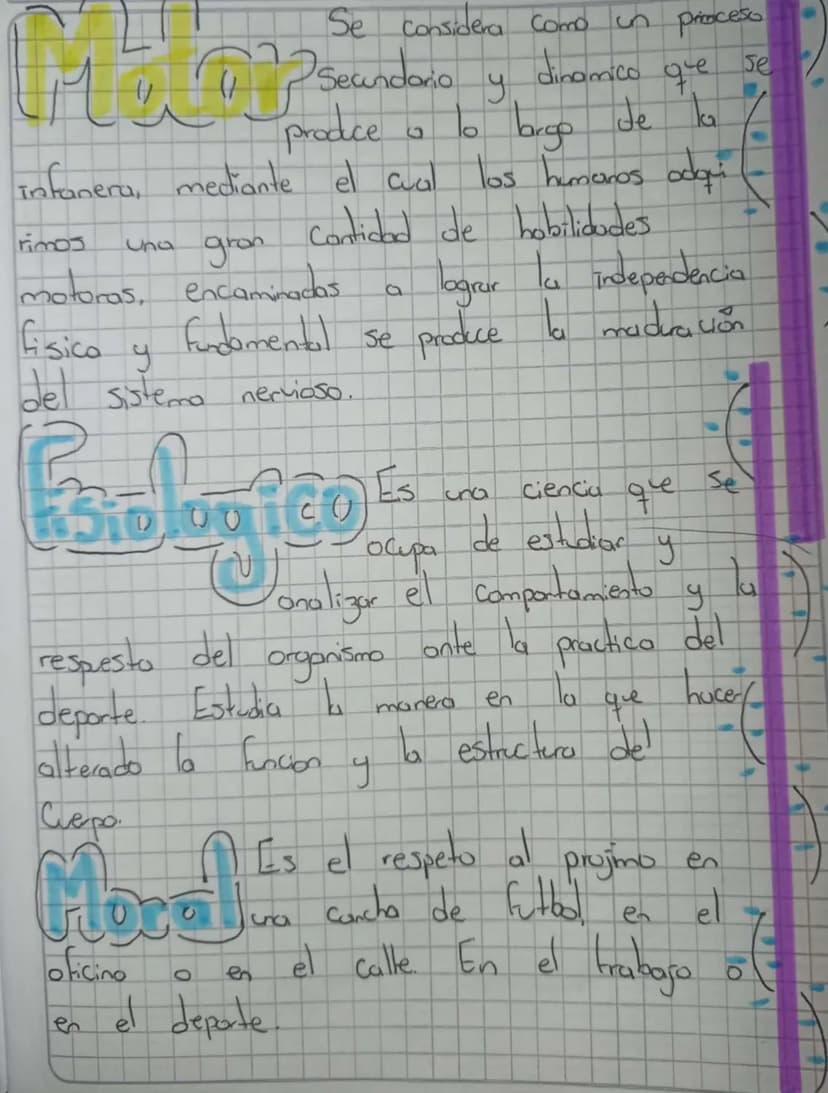 Motor Se considera como un proceso
Secundario y dinamico que se
produce a lo largo de la
infanera, mediante el cual los humanos adqui
rimos una gran cantidad de habilidades
motoras, encaminadas a lograr la independencia
fisica y fundamental se produce la maduración
del sistema nervioso.
Fisiologico Es una ciencia que se
ocupa de estudiar y
analizar el comportamiento y la
respuesta del organismo ante la practica del
deporte. Estudia la manera en la que hacer
alterado la funcion y la estructura del
Cuerpo.
Moral Es el respeto al projimo en
una cancha de futbol, en el
oficina o en el calle. En el trabajo o
en el deporte.